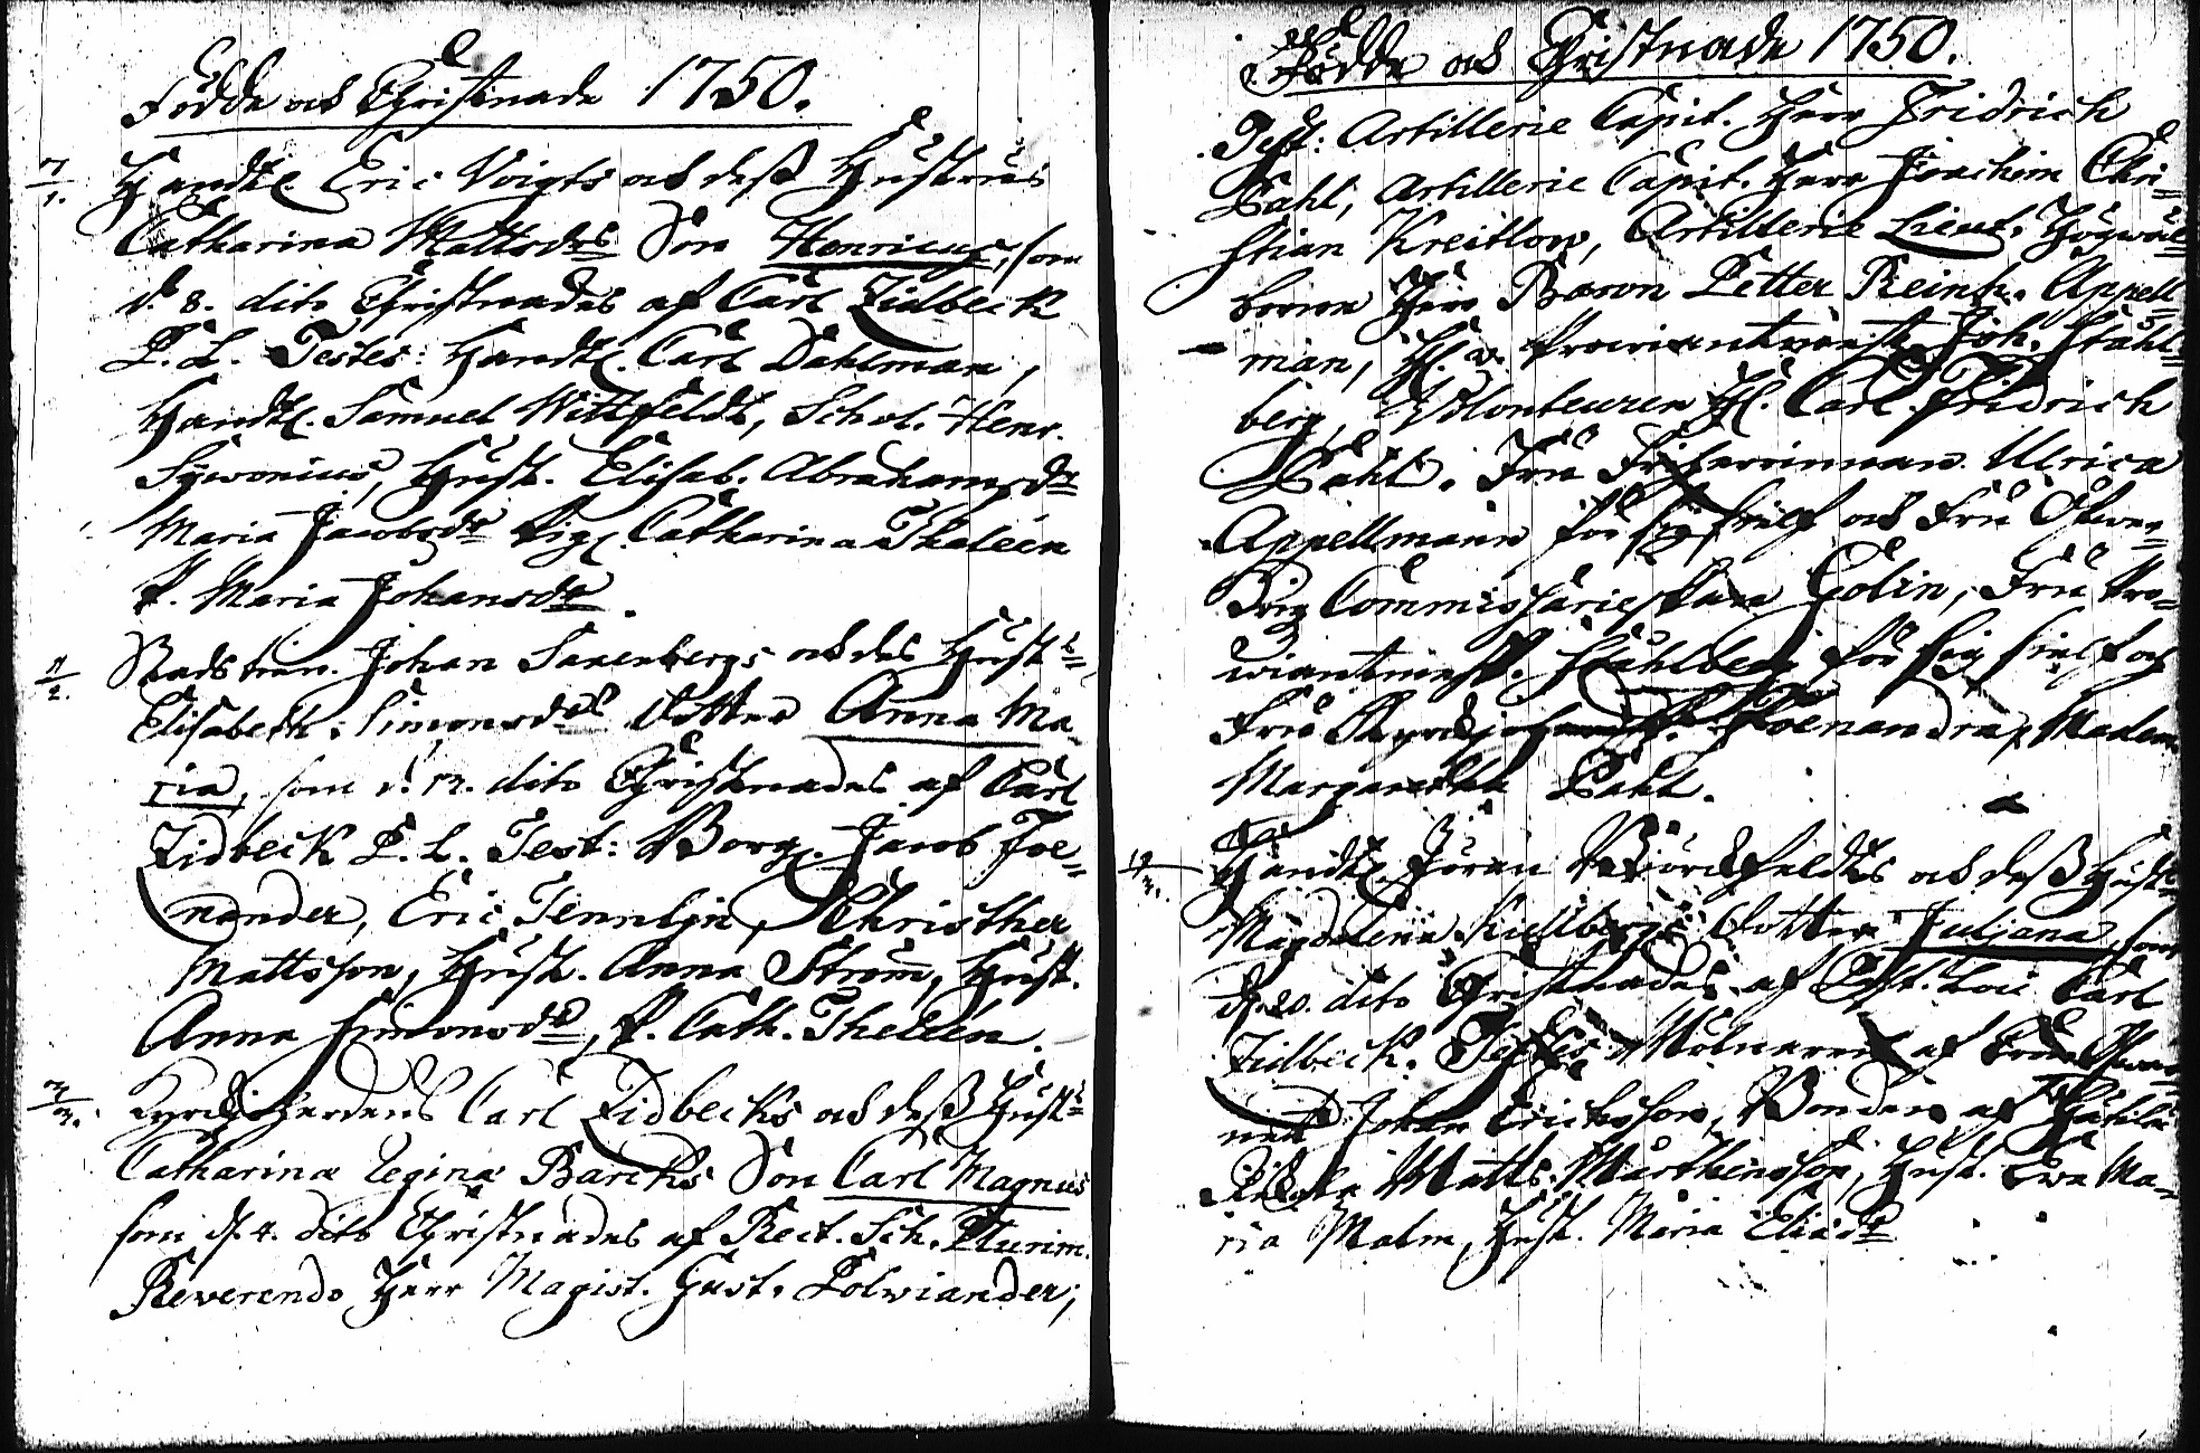 Födde och Christnade 1750.
7/1. Handl. Eric Voigts och dess Hustrus
Catharina Mattsdrs Son Henricus, som
d. 8. dito Christnades af Carl Zidbeck
P. L. Testes: Handl. Carl Dahlman,
Handl. Samuel Wittfeldt, Schol. Henr.
Sywonius, Hust. Elisab. Abrahamsdr
Maria Jacobsdr Pig. Catharina Thaleen
P. Maria Johansdr.
11/2. Johan Saxenbergs och des Hustr
Elisabeth Simonsdrs dotter Anna Ma-
ria, som d. 12. dito Christnades af Carl
Zidbeck P. L. Test: Borg. Jacob Foe-
nander, Eric Tennlin, Christher
Mattsson, Hust. Anna Strom, Hust.
Anna Simonsdr, P. Cath. Theleen.
3/3. Kyrckioherdens Carl Zidbecks och dess Hustr
Catharina Regina Barcks Son Carl Magnus
som d. 4. dito Christnades af Rect. Sch. Plurim.
Reverendo Herr Magist. Gust. Polviander;
Födde och Christnade 1750.
Test: Artillerie Capit. Herr Fridrich
Pahl, Artillerie Capit. Herr Joachim Chri-
stian Kreitlow, Artillerie Lieut. Högwäl-
borne Herr Baron Petter Reinh. Appell-
man, H. Proviantmäst. Joh. Ståhl-
berg, Volonteuren H. Carl Fridrich
Pahl. Fru Friherrinnan Ulrica
Appellmann för sig sielf och Fru Öfwer-
Krigs Commissarieskan Golin, Fru Pro-
wiantmäst. Ståhlberg för sig sielf och
Fru Foenandra, Madam
Margaretha Pahl.
19/3. Handl. Jöran Björckfeldts och dess Hustr
Magdalena Kiellbergs dotter Juliana, som
d. 20. dito Christnades af Past. Loci Carl
Zidbeck. Testes: Mölnaren af
Johan Ericksson, Bonden af
Matts Mårthensson, Hust. Ewa Ma-
ria Malm, Hust. Maria Eliædr